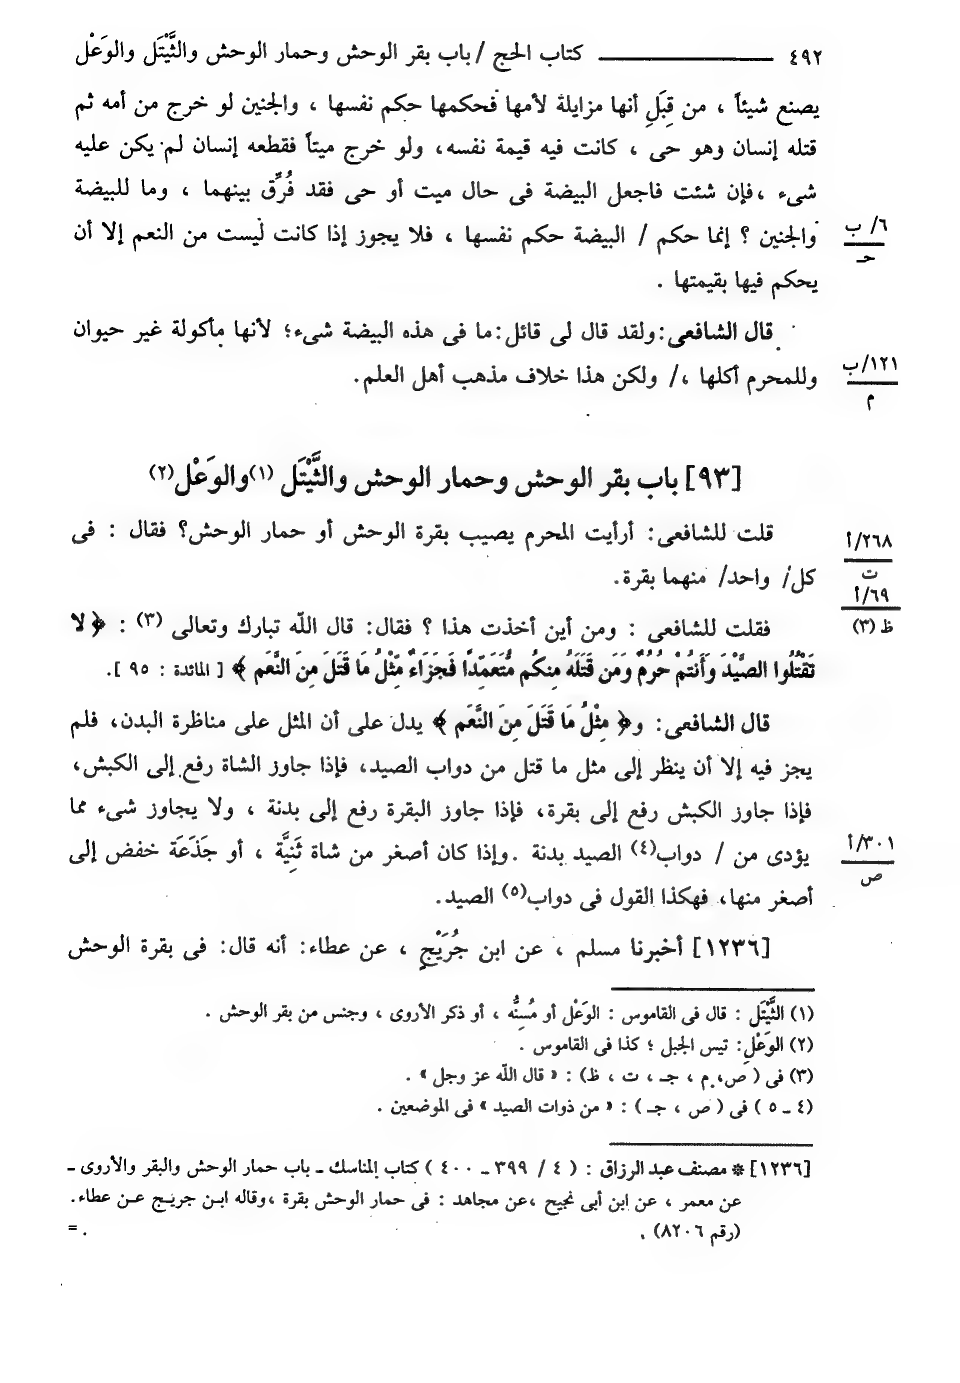 ٤٩٢ ــــــــــــــــ كتاب الحج / باب بقر الوحش وحمار الوحش والثَّيْتَل والوَعْل
يصنع شيئاً ، من قِبَلِ أنها مزايلة لأمها فحكمها حكم نفسها ، والجنين لو خرج من أمه ثم
قتله إنسان وهو حى ، كانت فيه قيمة نفسه، ولو خرج ميتاً فقطعه إنسان لم يكن عليه
شىء ،فإن شئت فاجعل البيضة فى حال ميت أو حى فقد فُرِّق بينهما ، وما للبيضة
والجنين ؟ إنما حكم / البيضة حكم نفسها ، فلا يجوز إذا كانت ليست من النعم إلا أن
٦/ ب
جـ
يحكم فيها بقيمتها .
قال الشافعى:ولقد قال لى قائل:ما فى هذه البيضة شىء؛ لأنها مأكولة غير حيوان
وللمحرم أكلها ،/ ولكن هذا خلاف مذهب أهل العلم.
١٢١/ب
م
[٩٣] باب بقر الوحش وحمار الوحش والثَّيْتَل (١)والوَعْل(٢)
قلت للشافعى: أرأيت المحرم يصيب بقرة الوحش أو حمار الوحش؟ فقال : فى
٢٦٨/أ
ت
كل/ واحد/ منهما بقرة.
٦٩/أ
ظ (٣)
فقلت للشافعى : ومن أين أخذت هذا ؟ فقال: قال اللّه تبارك وتعالى (٣) : ﴿ لا
تَقْتُلُوا الصَّيْدَ وَأَنتُمْ حُرُمٌ وَمَن قَتَلَهُ مِنكُم مُّتَعَمِّدًا فَجَزَاءٌ مِّثْلُ مَا قَتَلَ مِنَ النَّعَمِ ﴾ [ المائدة : ٩٥ ].
قال الشافعى: و﴿ مِثْلُ مَا قَتَلَ مِنَ النَّعَمِ ﴾ يدل على أن المثل على مناظرة البدن، فلم
يجز فيه إلا أن ينظر إلى مثل ما قتل من دواب الصيد، فإذا جاوز الشاة رفع إلى الكبش،
فإذا جاوز الكبش رفع إلى بقرة، فإذا جاوز البقرة رفع إلى بدنة ، ولا يجاوز شىء مما
يؤدى من / دواب(٤) الصيد بدنة .وإذا كان أصغر من شاة ثَنِيَّة ، أو جَذَعَة خفض إلى
٣٠١/أ
ص
أصغر منها، فهكذا القول فى دواب(٥) الصيد.
[١٢٣٦] أخبرنا مسلم ، عن ابن جُرَيْجٍ ، عن عطاء: أنه قال: فى بقرة الوحش
(١) الثَّيْتَل : قال فى القاموس : الوَعْل أو مُسِنُّه ، أو ذكر الأروى ، وجنس من بقر الوحش .
(٢) الوَعْلِ: تيس الجبل ؛ كذا فى القاموس .
(٣) فى ( ص، م ، جـ ، ت ، ظ) : « قال اللّه عز وجل » .
(٤ ـ ٥ ) فى ( ص ، جـ ) : « من ذوات الصيد » فى الموضعين .
[١٢٣٦] ❊ مصنف عبد الرزاق : ( ٤ / ٣٩٩ ـ ٤٠٠ ) كتاب المناسك ـ باب حمار الوحش والبقر والأروى ـ
عن معمر ، عن ابن أبى نجيح ،عن مجاهد : فى حمار الوحش بقرة ،وقاله ابن جريج عن عطاء.
(رقم ٨٢٠٦) . =